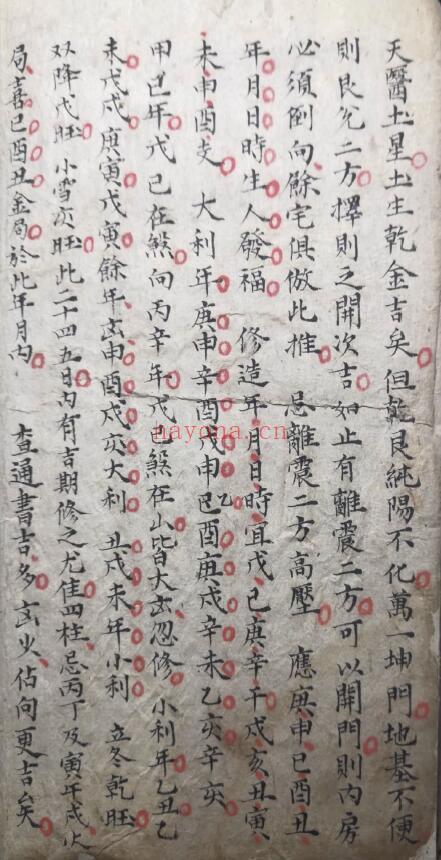 天醫土星土生乾金吉矣但乾艮純陽不化萬一坤門地基不便
則艮兌二方擇則之開次吉如止有離震二方可以開門則內房
必須倒向餘宅俱倣此推　忌離震二方高壓　應庚申巳酉丑
年月日時生人發福　修造年月日時宜戊己庚辛干戌亥丑寅
未申酉支　大利年庚申辛酉戊申己酉庚戌辛未乙亥辛亥
乙
甲己年戊己在煞向丙辛年戊己煞在山皆大凶忌修　小利年乙丑乙
未戊戌庚寅戊寅餘年玄申酉戌亥大利　丑戌未年小利　立冬乾旺
双降戊旺小雪亥旺此二十四五日內有吉期修之尤佳四柱忌丙丁及寅午戌火
局喜巳酉丑金局於此年月內　查通書吉多凶少佔向更吉矣
nayona.cn